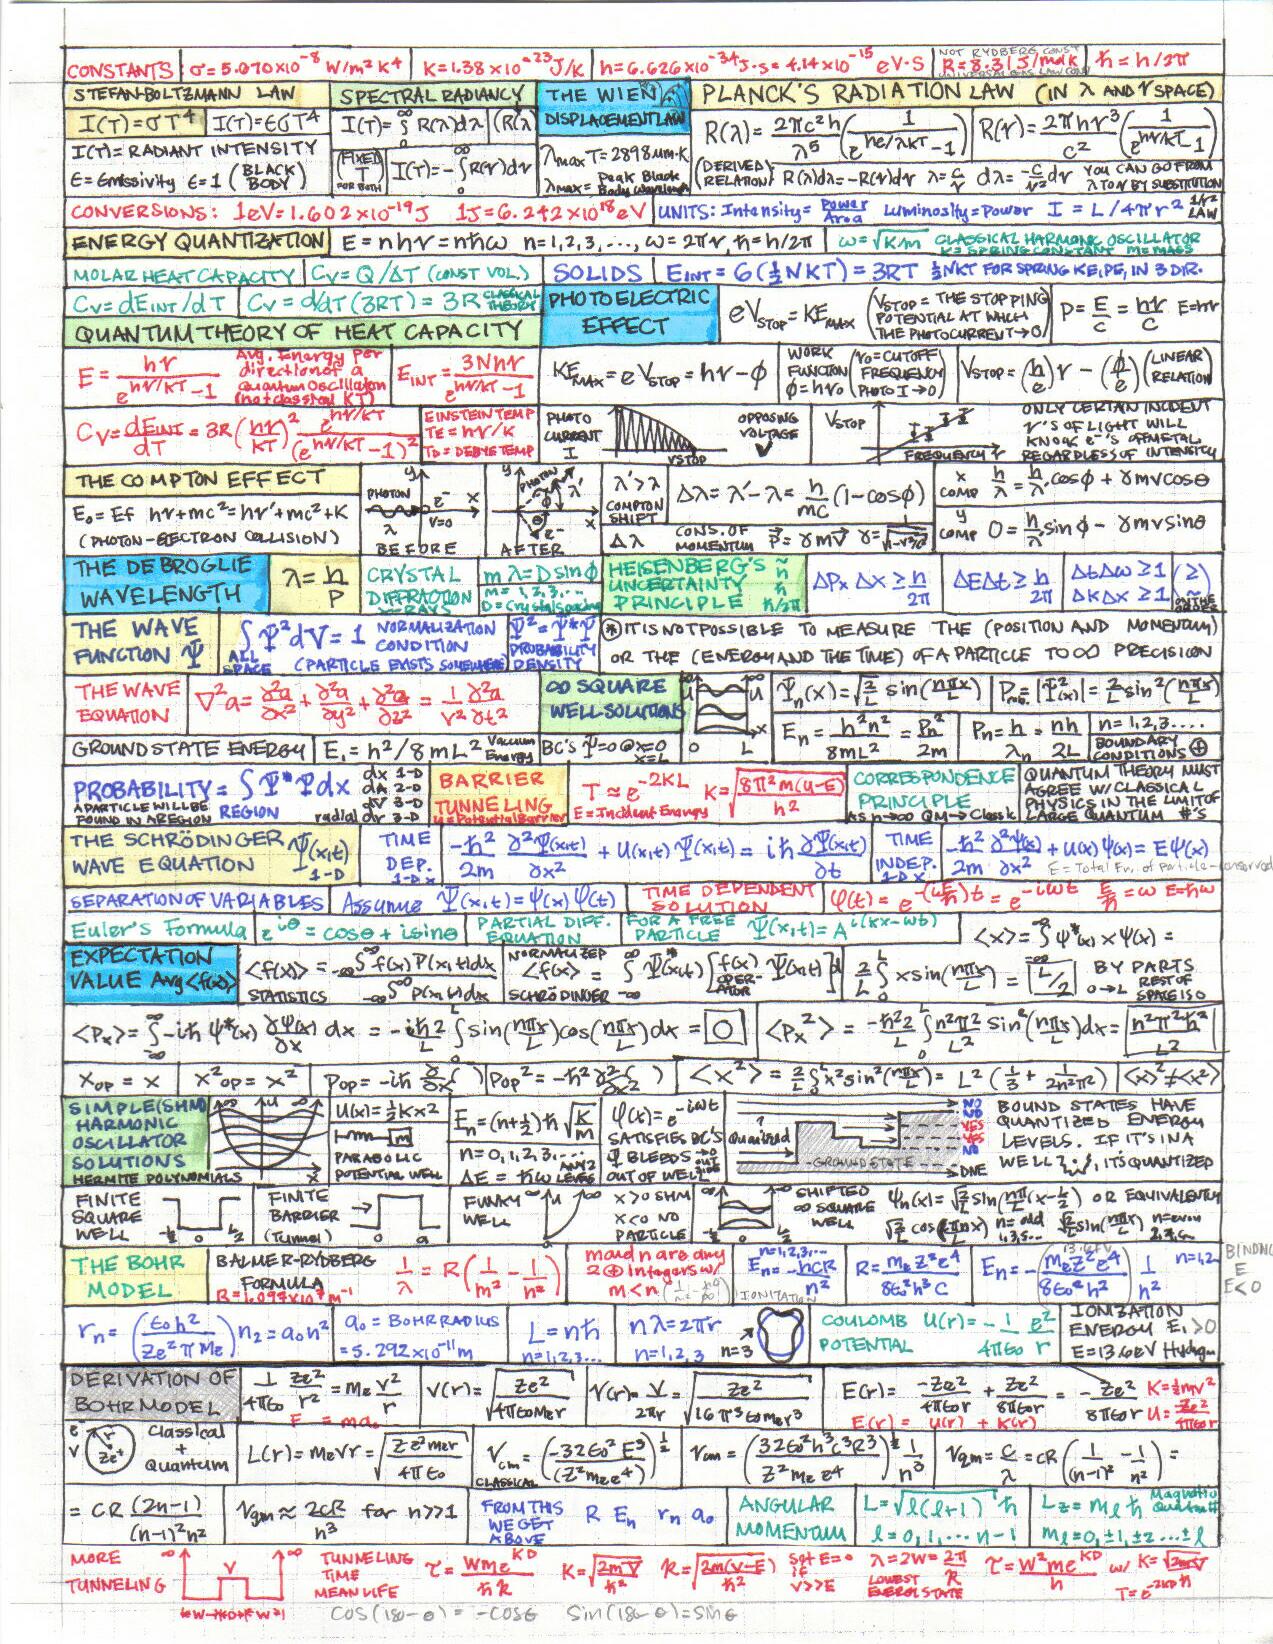 CONSTANTS σ=5.670×10⁻⁸ W/m²K⁴ K=1.38×10⁻²³J/K h=6.626×10⁻³⁴J·s=4.14×10⁻¹⁵ eV·S NOT RYDBERG CONST R=8.31J/molK UNIVERSAL GAS LAW CONST ħ=h/2π
STEFAN-BOLTZMANN LAW SPECTRAL RADIANCY THE WIEN DISPLACEMENT LAW PLANCK'S RADIATION LAW (IN λ AND ν SPACE)
I(T)=σT⁴ I(T)=εσT⁴ I(T)=∫₀^∞R(λ)dλ (R(λ) R(λ)=2πc²h/λ⁵(1/(e^(hc/λKT)-1)) R(ν)=2πhν³/c²(1/(e^(hν/KT)-1))
I(T)=RADIANT INTENSITY (FIXED T FOR BOTH) I(T)=-∫₀^∞R(ν)dν λmaxT=2898μm·K
ε=Emissivity ε=1 (BLACK BODY) λmax=Peak Black Body Wavelength (DERIVED RELATION) R(λ)dλ=-R(ν)dν λ=c/ν dλ=-c/ν²dν YOU CAN GO FROM λ TO ν BY SUBSTITUTION
CONVERSIONS: 1eV=1.602×10⁻¹⁹J 1J=6.242×10¹⁸eV UNITS: Intensity=Power/Area Luminosity=Power I=L/4πr² 1/r² LAW
ENERGY QUANTIZATION E=nhν=nħω n=1,2,3,..., ω=2πν, ħ=h/2π ω=√K/m CLASSICAL HARMONIC OSCILLATOR K=SPRING CONSTANT m=MASS
MOLAR HEAT CAPACITY Cv=Q/ΔT (CONST VOL.) SOLIDS EINT=6(½NKT)=3RT ½NKT FOR SPRING KE,PE, IN 3 DIR.
Cv=dEINT/dT Cv=d/dT(3RT)=3R CLASSICAL THEORY PHOTOELECTRIC EFFECT eVSTOP=KEMAX (VSTOP=THE STOPPING POTENTIAL AT WHICH THE PHOTOCURRENT→0) P=E/c=hν/c E=hν
QUANTUM THEORY OF HEAT CAPACITY
E=hν/(e^(hν/KT)-1) Avg. Energy per direction of a Quantum Oscillator (not classical KT) EINT=3Nhν/(e^(hν/KT)-1) KEMAX=eVSTOP=hν-φ WORK FUNCTION φ=hν₀ (ν₀=CUTOFF FREQUENCY PHOTO I→0) VSTOP=(h/e)ν-(φ/e) (LINEAR RELATION)
Cv=dEINT/dT=3R(hν/KT)² e^(hν/KT)/(e^(hν/KT)-1)² EINSTEIN TEMP TE=hν/K TD=DEBYE TEMP PHOTO CURRENT I VSTOP OPPOSING VOLTAGE V VSTOP FREQUENCY ν ONLY CERTAIN INCIDENT ν'S OF LIGHT WILL KNOCK e⁻'S OFF METAL REGARDLESS OF INTENSITY
THE COMPTON EFFECT PHOTON λ e⁻ V=0 x y BEFORE PHOTON λ' φ θ e⁻ x y AFTER λ'>λ COMPTON SHIFT Δλ Δλ=λ'-λ=h/mc(1-cosφ) x COMP h/λ=h/λ'cosφ+γmvcosθ
E₀=Ef hν+mc²=hν'+mc²+K
(PHOTON-ELECTRON COLLISION) CONS. OF MOMENTUM P=γmv γ=1/√(1-v²/c²) y COMP 0=h/λ'sinφ-γmvsinθ
THE DEBROGLIE WAVELENGTH λ=h/P CRYSTAL DIFFRACTION X-RAYS mλ=Dsinφ m=1,2,3,... D=Crystal Spacing HEISENBERG'S UNCERTAINTY PRINCIPLE ħ h/2π ΔPxΔx≥h/2π ΔEΔt≥h/2π ΔtΔω≥1 ΔKΔx≥1 (≥) ON THE ORDER
THE WAVE FUNCTION Ψ ∫Ψ²dV=1 ALL SPACE NORMALIZATION CONDITION (PARTICLE EXISTS SOMEWHERE) Ψ²=Ψ*Ψ PROBABILITY DENSITY ⊛IT IS NOT POSSIBLE TO MEASURE THE (POSITION AND MOMENTUM)
OR THE (ENERGY AND THE TIME) OF A PARTICLE TO ∞ PRECISION
THE WAVE EQUATION ∇²a=∂²a/∂x²+∂²a/∂y²+∂²a/∂z²=1/v² ∂²a/∂t² ∞ SQUARE WELL SOLUTIONS Ψn(x)=√2/L sin(nπx/L) Prob.=|Ψ²(x)|=2/L sin²(nπx/L)
GROUND STATE ENERGY E₁=h²/8mL² Vacuum Energy BC'S Ψ=0@x=0 x=L 0 L En=h²n²/8mL²=Pn²/2m Pn=h/λn=nh/2L n=1,2,3.... BOUNDARY CONDITIONS ⊕
PROBABILITY=∫Ψ*Ψdx REGION A PARTICLE WILL BE FOUND IN A REGION dx 1-D dA 2-D dV 3-D radial dr 3-D BARRIER TUNNELING U=Potential Barrier T≈e^(-2KL) K=√(8π²m(U-E)/h²) E=Incident Energy CORRESPONDENCE PRINCIPLE AS n→∞ QM→Classic QUANTUM THEORY MUST AGREE W/CLASSICAL PHYSICS IN THE LIMIT OF LARGE QUANTUM #'S
THE SCHRÖDINGER WAVE EQUATION Ψ(x,t) 1-D TIME DEP. 1-D x -ħ²/2m ∂²Ψ(x,t)/∂x²+U(x,t)Ψ(x,t)=iħ∂Ψ(x,t)/∂t TIME INDEP. 1-D x -ħ²/2m ∂²ψ(x)/∂x²+U(x)ψ(x)=Eψ(x) E=Total En. of Particle-conserved
SEPARATION OF VARIABLES Assume Ψ(x,t)=ψ(x)φ(t) TIME DEPENDENT SOLUTION φ(t)=e^(-(iE/ħ)t)=e^(-iωt) E/ħ=ω E=ħω
Euler's Formula e^(iθ)=cosθ+isinθ PARTIAL DIFF. EQUATION FOR A FREE PARTICLE Ψ(x,t)=A^(i(kx-ωt)) <x>=∫Ψ*(x)xΨ(x)=
EXPECTATION VALUE Avg<f(x)> <f(x)>=∫f(x)P(x,t)dx/∫P(x,t)dx STATISTICS NORMALIZED <f(x)>=∫Ψ*(x,t)[f(x) OPERATOR Ψ(x,t)]d SCHRÖDINGER 2/L∫₀^L xsin²(nπx/L)=L/2 BY PARTS 0→L REST OF SPACE IS 0
<Px>=∫-iħψ*(x)∂ψ(x)/∂x dx=-iħ2/L∫₀^L sin(nπx/L)cos(nπx/L)dx=0 <Px²>=-ħ²2/L∫₀^L n²π²/L² sin²(nπx/L)dx=n²π²ħ²/L²
xop=x x²op=x² Pop=-iħ∂/∂x( ) Pop²=-ħ²∂²/∂x²( ) <x²>=2/L∫₀^L x²sin²(nπx/L)=L²(1/3+1/2n²π²) <x>²≠<x²>
SIMPLE (SHM) HARMONIC OSCILLATOR SOLUTIONS HERMITE POLYNOMIALS ∞ U ∞ x U(x)=½Kx² m PARABOLIC POTENTIAL WELL En=(n+½)ħ√K/m n=0,1,2,3,... ΔE=ħω ANY 2 LEVELS φ(t)=e^(-iωt) SATISFIES BC'S Ψ BLEEDS →0 OUT OF WELL ? Quantized GROUND STATE NO NO YES YES NO DNE BOUND STATES HAVE QUANTIZED ENERGY LEVELS. IF IT'S IN A WELL, IT'S QUANTIZED
FINITE SQUARE WELL -L/2 0 L/2 FINITE BARRIER (Tunnel) 0 a FUNKY WELL ∞ U ∞ x>0 SHM x<0 NO PARTICLE -L/2 L/2 SHIFTED ∞ SQUARE WELL ψn(x)=√2/L sin(nπ/L(x-L/2)) OR EQUIVALENTLY √2/L cos(nπx/L) n=odd 1,3,5... √2/L sin(nπx/L) n=even 2,4,6
THE BOHR MODEL BALMER-RYDBERG FORMULA R=1.097×10⁷m⁻¹ 1/λ=R(1/m²-1/n²) m and n are any 2 ⊕ Integers w/ m<n IONIZATION n=1,2,3... En=-hCR/n² R=meZ²e⁴/8ε₀²h³C En=-(meZ²e⁴/8ε₀²h²)1/n² 13.6eV n=1,2 BINDING E E<0
rn=(ε₀h²/Ze²πme)n²=a₀n² a₀=BOHR RADIUS =5.292×10⁻¹¹m L=nħ n=1,2,3... nλ=2πr n=1,2,3 n=3 COULOMB POTENTIAL U(r)=-1/4πε₀ e²/r IONIZATION ENERGY E₁>0 E=13.6eV Hydrogen
DERIVATION OF BOHR MODEL 1/4πε₀ Ze²/r²=me v²/r F=ma V(r)=√(Ze²/4πε₀mer) ν(r)=V/2πr=√(Ze²/16π³ε₀mer³) E(r)=-Ze²/4πε₀r+Ze²/8πε₀r=-Ze²/8πε₀r K=½mv² E(r)=U(r)+K(r) U=-Ze²/4πε₀r
e⁻ V r Ze⁺ Classical + Quantum L(r)=meVr=√(Ze²mer/4πε₀) νcm=(-32ε₀²E³/(Z²mee⁴))^½ CLASSICAL νcm=(32ε₀²h³c³R³/Z²mee⁴)^½ 1/n³ νqm=c/λ=cR(1/(n-1)²-1/n²)=
=CR(2n-1)/(n-1)²n² νqm≈2cR/n³ for n>>1 FROM THIS WE GET ABOVE R En rn a₀ ANGULAR MOMENTUM L=√ℓ(ℓ+1) ħ ℓ=0,1,...n-1 Lz=mℓħ Magnetic Quantum # mℓ=0,±1,±2...±ℓ
MORE TUNNELING ∞ V ∞ TUNNELING TIME MEAN LIFE τ=Wme^(KD)/ħk K=√(2mV/ħ²) k=√(2m(V-E)/ħ²) set E=0 if V>>E λ=2W=2π/k LOWEST ENERGY STATE τ=W²me^(KD)/h w/ K=√2mV/ħ T=e^(-2KD)
COS(180-θ)=-COSθ Sin(180-θ)=Sinθ